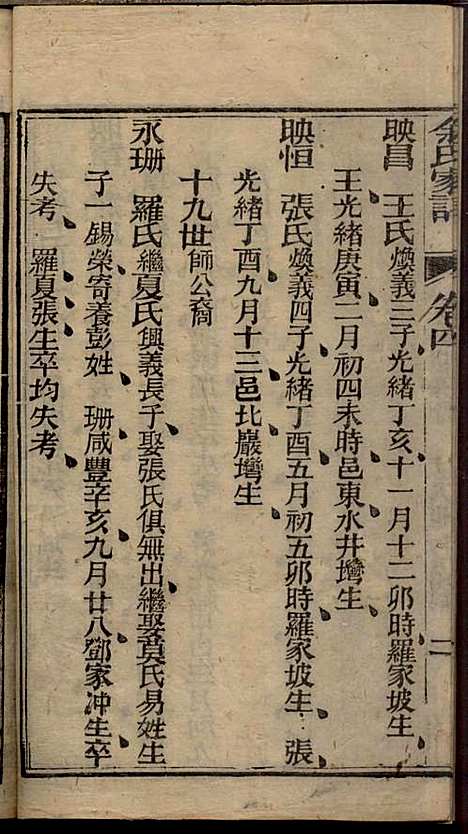 余氏家譜
卷四
二
映昌　王氏煥義三子光緒丁亥十一月十二卯時羅家坡生
王光緒庚寅二月初四未時邑東水井塆生
映恒　張氏煥義四子光緒丁酉五月初五卯時羅家坡生　張
光緒丁酉九月十三邑北巖塆生
十九世師公裔
永珊　羅氏繼夏氏興義長子娶張氏俱無出繼娶莫氏易姓生
子一錫榮寄養彭姓　珊咸豐辛亥九月廿八鄧家冲生卒
失考　羅夏張生卒均失考